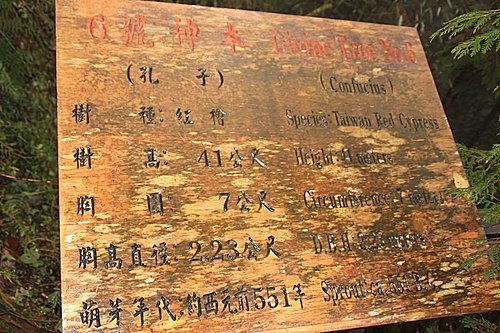 6號神木 Divine Tree No.6
(孔子) (Confucius)
樹種:紅檜 Species:Taiwan Red Cypress
樹高:41公尺 Height:41 meters
胸圍:7公尺 Circumference:7 meters
胸高直徑:2.23公尺 D.B.H.:2.23 meters
萌芽年代:約西元前551年 Sprout:ca.551 B.C.